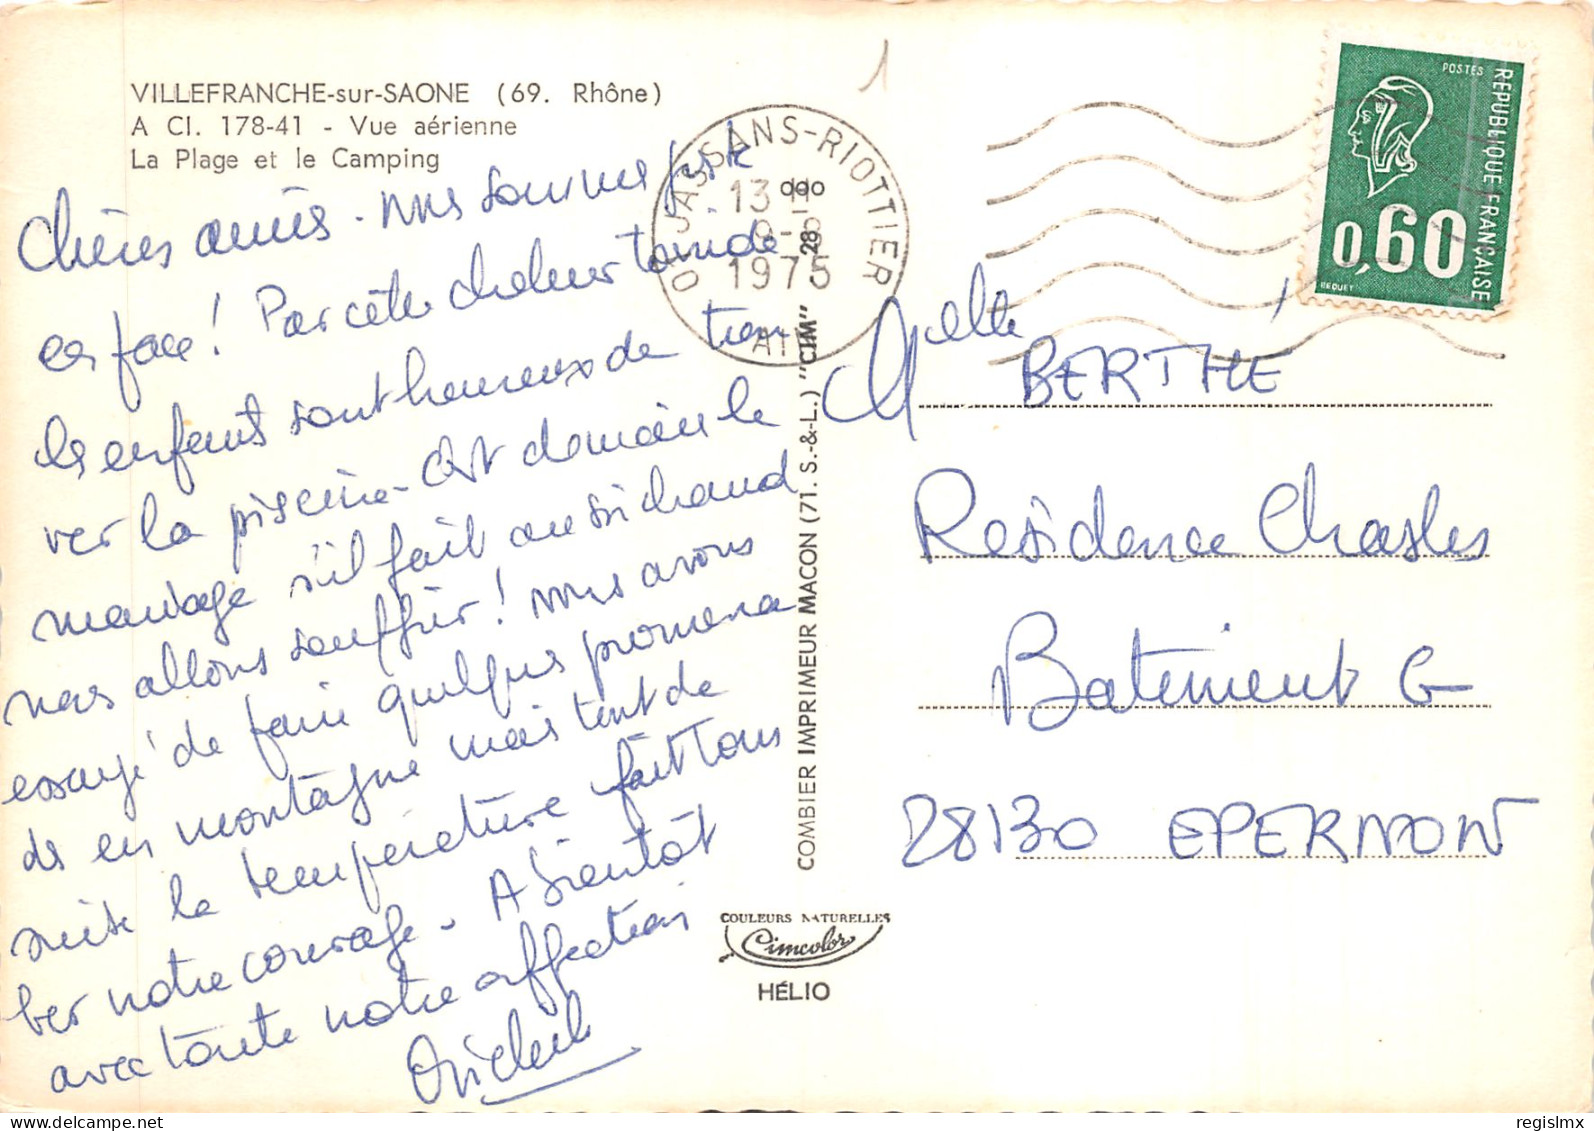 VILLEFRANCHE-sur-SAONE (69. Rhône)
A CI. 178-41 - Vue aérienne
La Plage et le Camping
Chères amies. Nous sommes juste
en face! Par cette chaleur torride
les enfants sont heureux de trou
ver la piscine. C'est demain le
mariage s'il fait aussi chaud
nous allons souffrir! Nous avons
essayé de faire quelques promena
des en montagne mais tout de
suite la température fait tom
ber notre courage. A bientôt
avec toute notre affection
01 JASSANS-RIOTTIER
13 H
1975
AIN
POSTES
REPUBLIQUE FRANÇAISE
0,60
BEQUET
Melle BERTHÉ
Résidence Chasles
Batiment G
28130 EPERNON
COMBIER IMPRIMEUR MACON (71. S.-&-L.) "CIM"
COULEURS NATURELLES
Cimcolor
HÉLIO
delcampe.net
regislmx